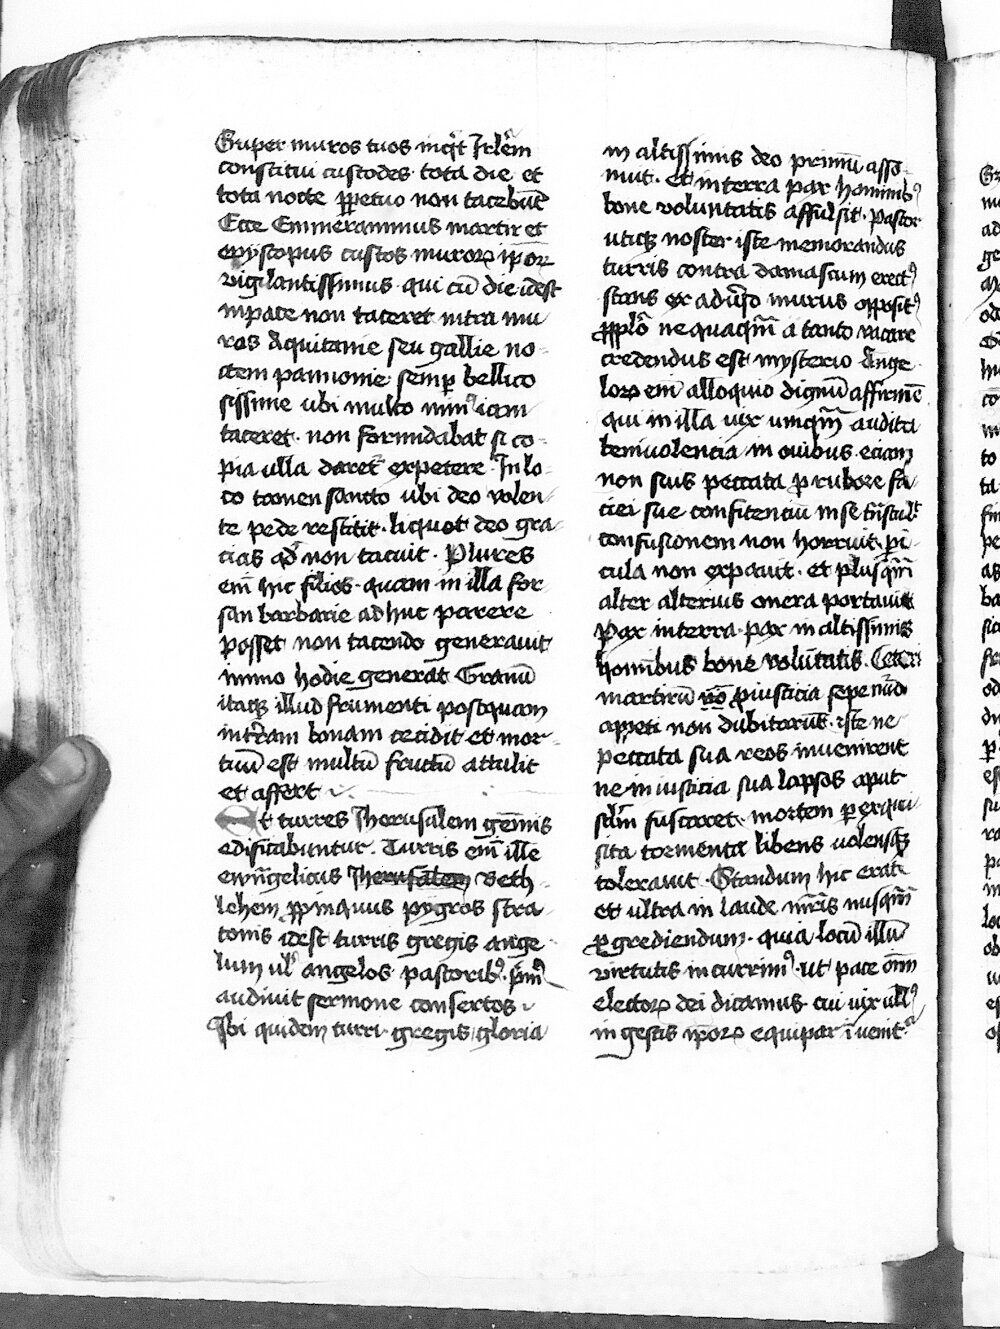 Super muros tuos inq̄t Jrlēm
constitui custodes tota die et
tota nocte ꝑpetuo non tacebūt
Ecce Emmerammus martir et
epyscopus custos muroꝝ ip̄oꝝ
vigilantissimus qui cū die idest
in pace non taceret intra mu
ros Aquitanie seu gallie no-
ctem pannonie semꝑ bellico
sissime ubi multo minꝰ iam
taceret. non formidabat si co-
pia ulla daret᷑ expetere. In lo-
co tamen sancto ubi deo volen-
te pede restitit. liquet deo gra-
cias qd̄ non tacuit. Plures
em̄ hic filios quam in illa for
san barbarie adhuc parere
posset non tacendo generauit
immo hodie generat Granū
itaqꝫ illud frumenti postquam
in tr̄am bonam cecidit et mor-
tuū est multū fructū attulit
et affert
Et turres Jherusalem gēmis
edificabuntur. Turris em̄ ille
ewn̄gelicus Jherusalem Beth-
lehem ꝓpinquus pygros stra-
tonis idest turris gregis ange-
lum ul̓ angelos pastoribꝰ
audiuit sermone consertos
Jbi quidem turri gregis gloria
in altissimis deo primū asso-
nuit. Et in terra pax hominibꝰ
bone voluntatis affulsit. Pastor
utiqꝫ noster iste memorandus
turris contra damascum erectꝰ
stans ex adūso murus oppositꝰ
ne quaqm̄ a tanto vacare
credendus est mysterio Ange-
loꝝ em̄ alloquio dignū affirmē
qui in illa vix umqm̄ audita
beniuolencia in ouibus eciam
non suis peccata p rubore fa-
ciei sue confitenciū in se
confusionem non horruit. pi-
cula non expauit. et plusqm̄
alter alterius onera portauit
Pax in terra pax in altissimis
homībus bone volūtatis. Ceteri
martirū ꝓ iusticia sepe
appeti non dubitarūt. iste ne
peccata sua reos inuenirent
ne in iusticia sua lapsos aput
fuscaret mortem p exqui
sita tormenta libens uolensqꝫ
tolerauit. Standum hic erat
et ultra in laude nusqm̄
ꝓgrediendum. quia locū illū
virtutis incurrimꝰ. ut pace oīm
electoꝝ dei dicamus cui vix ullꝰ
in gestis ip̄oꝝ equipar īuenit᷑